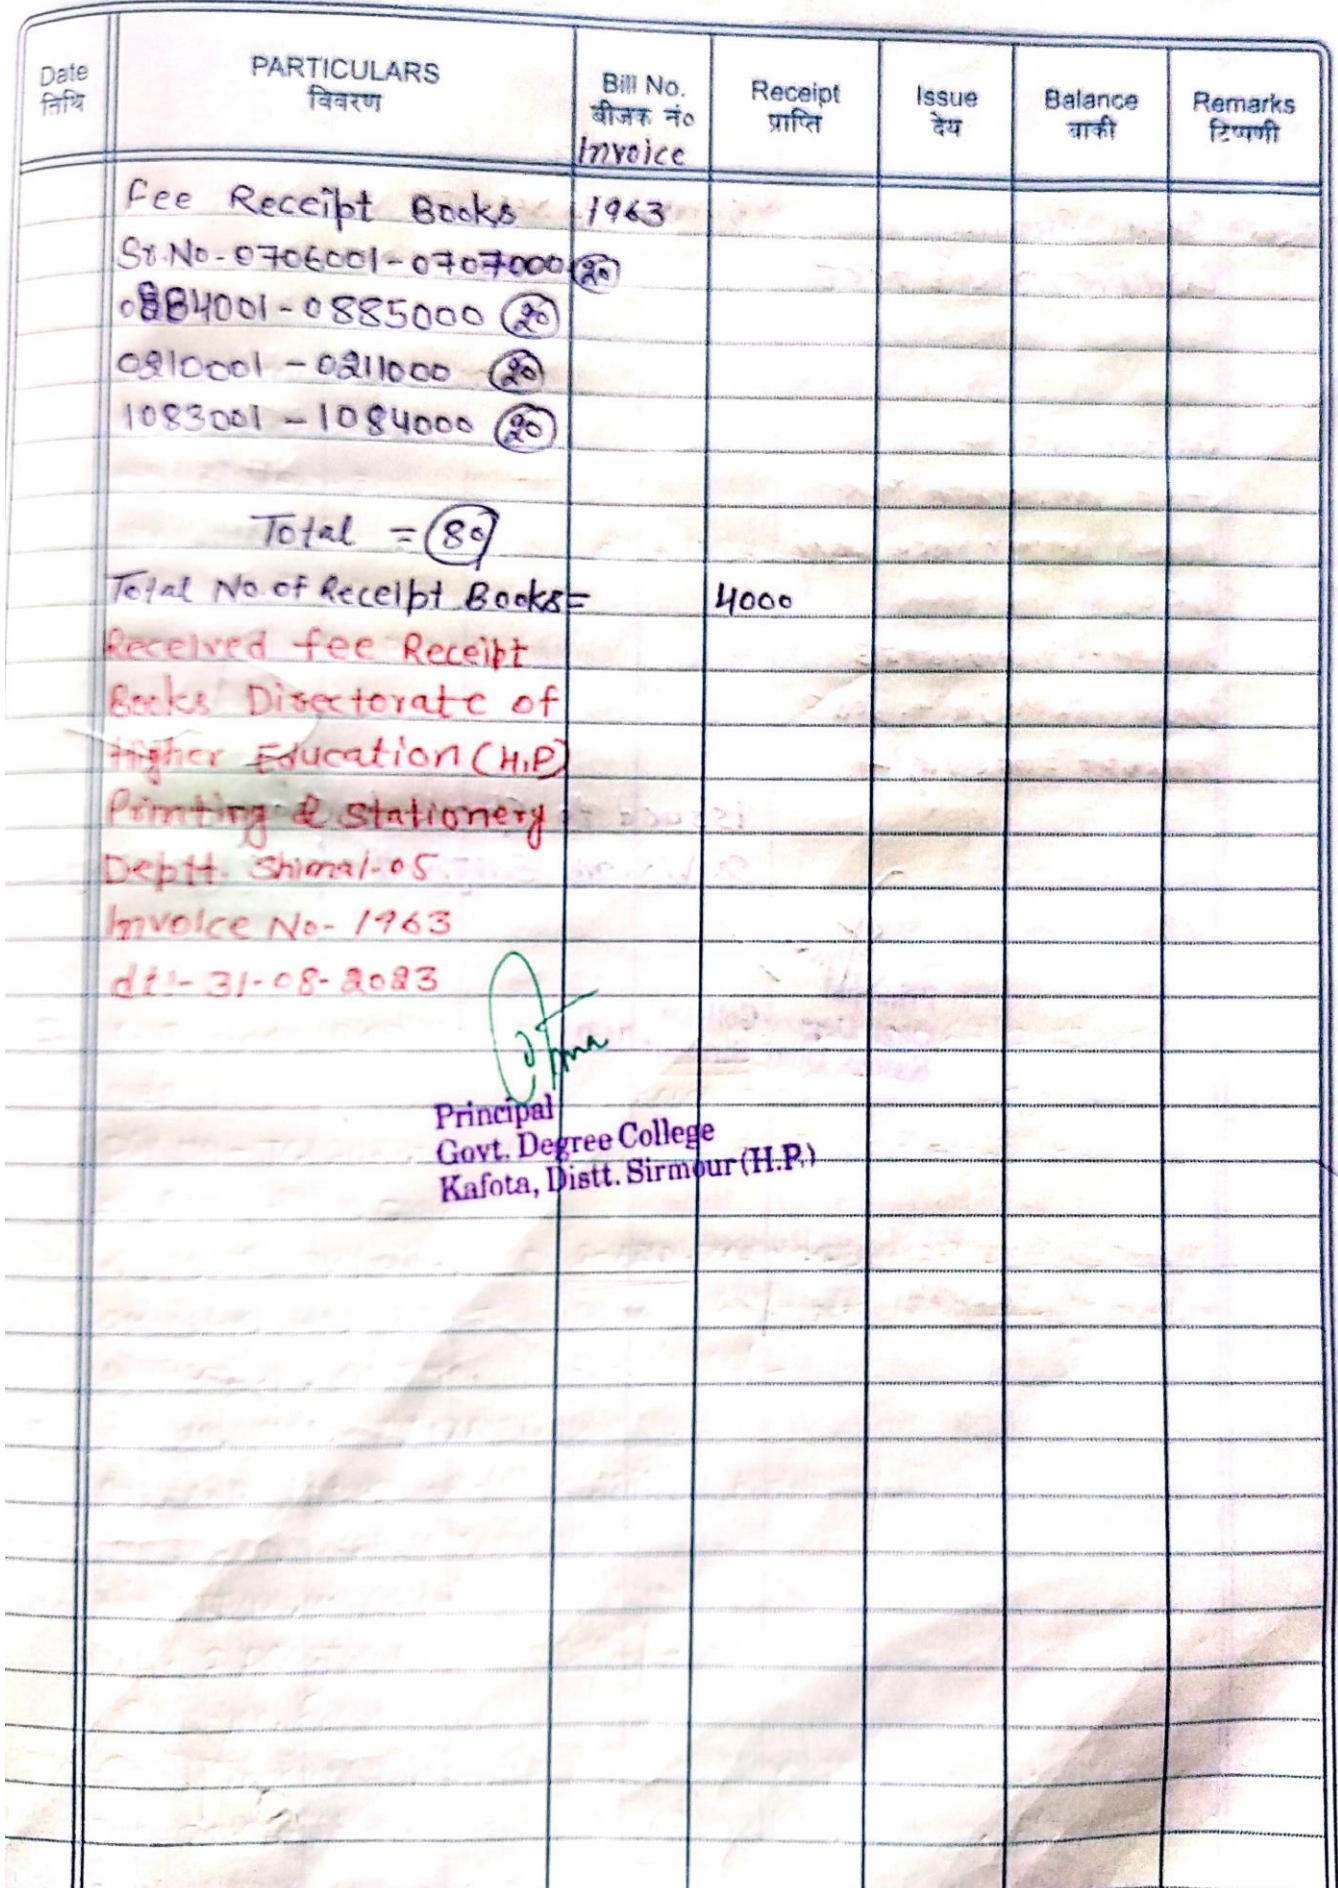 Date PARTICULARS Bill No. Receipt Issue Balance Remarks
तिथि विवरण बीजक नं० प्राप्ति देय बाकी टिप्पणी
Invoice
Fee Receipt Books 1963
Sr.No-0706001-0707000 20
0884001-0885000 20
0210001-0211000 20
1083001-1084000 20
Total = 80
Total No.of Receipt Books= 4000
Received fee Receipt
Books Directorate of
Higher Education (H.P)
Printing & Stationery
Deptt. Shimal-05
Invoice No- 1963
dt:- 31-08-2023
Principal
Govt. Degree College
Kafota, Distt. Sirmour (H.P.)